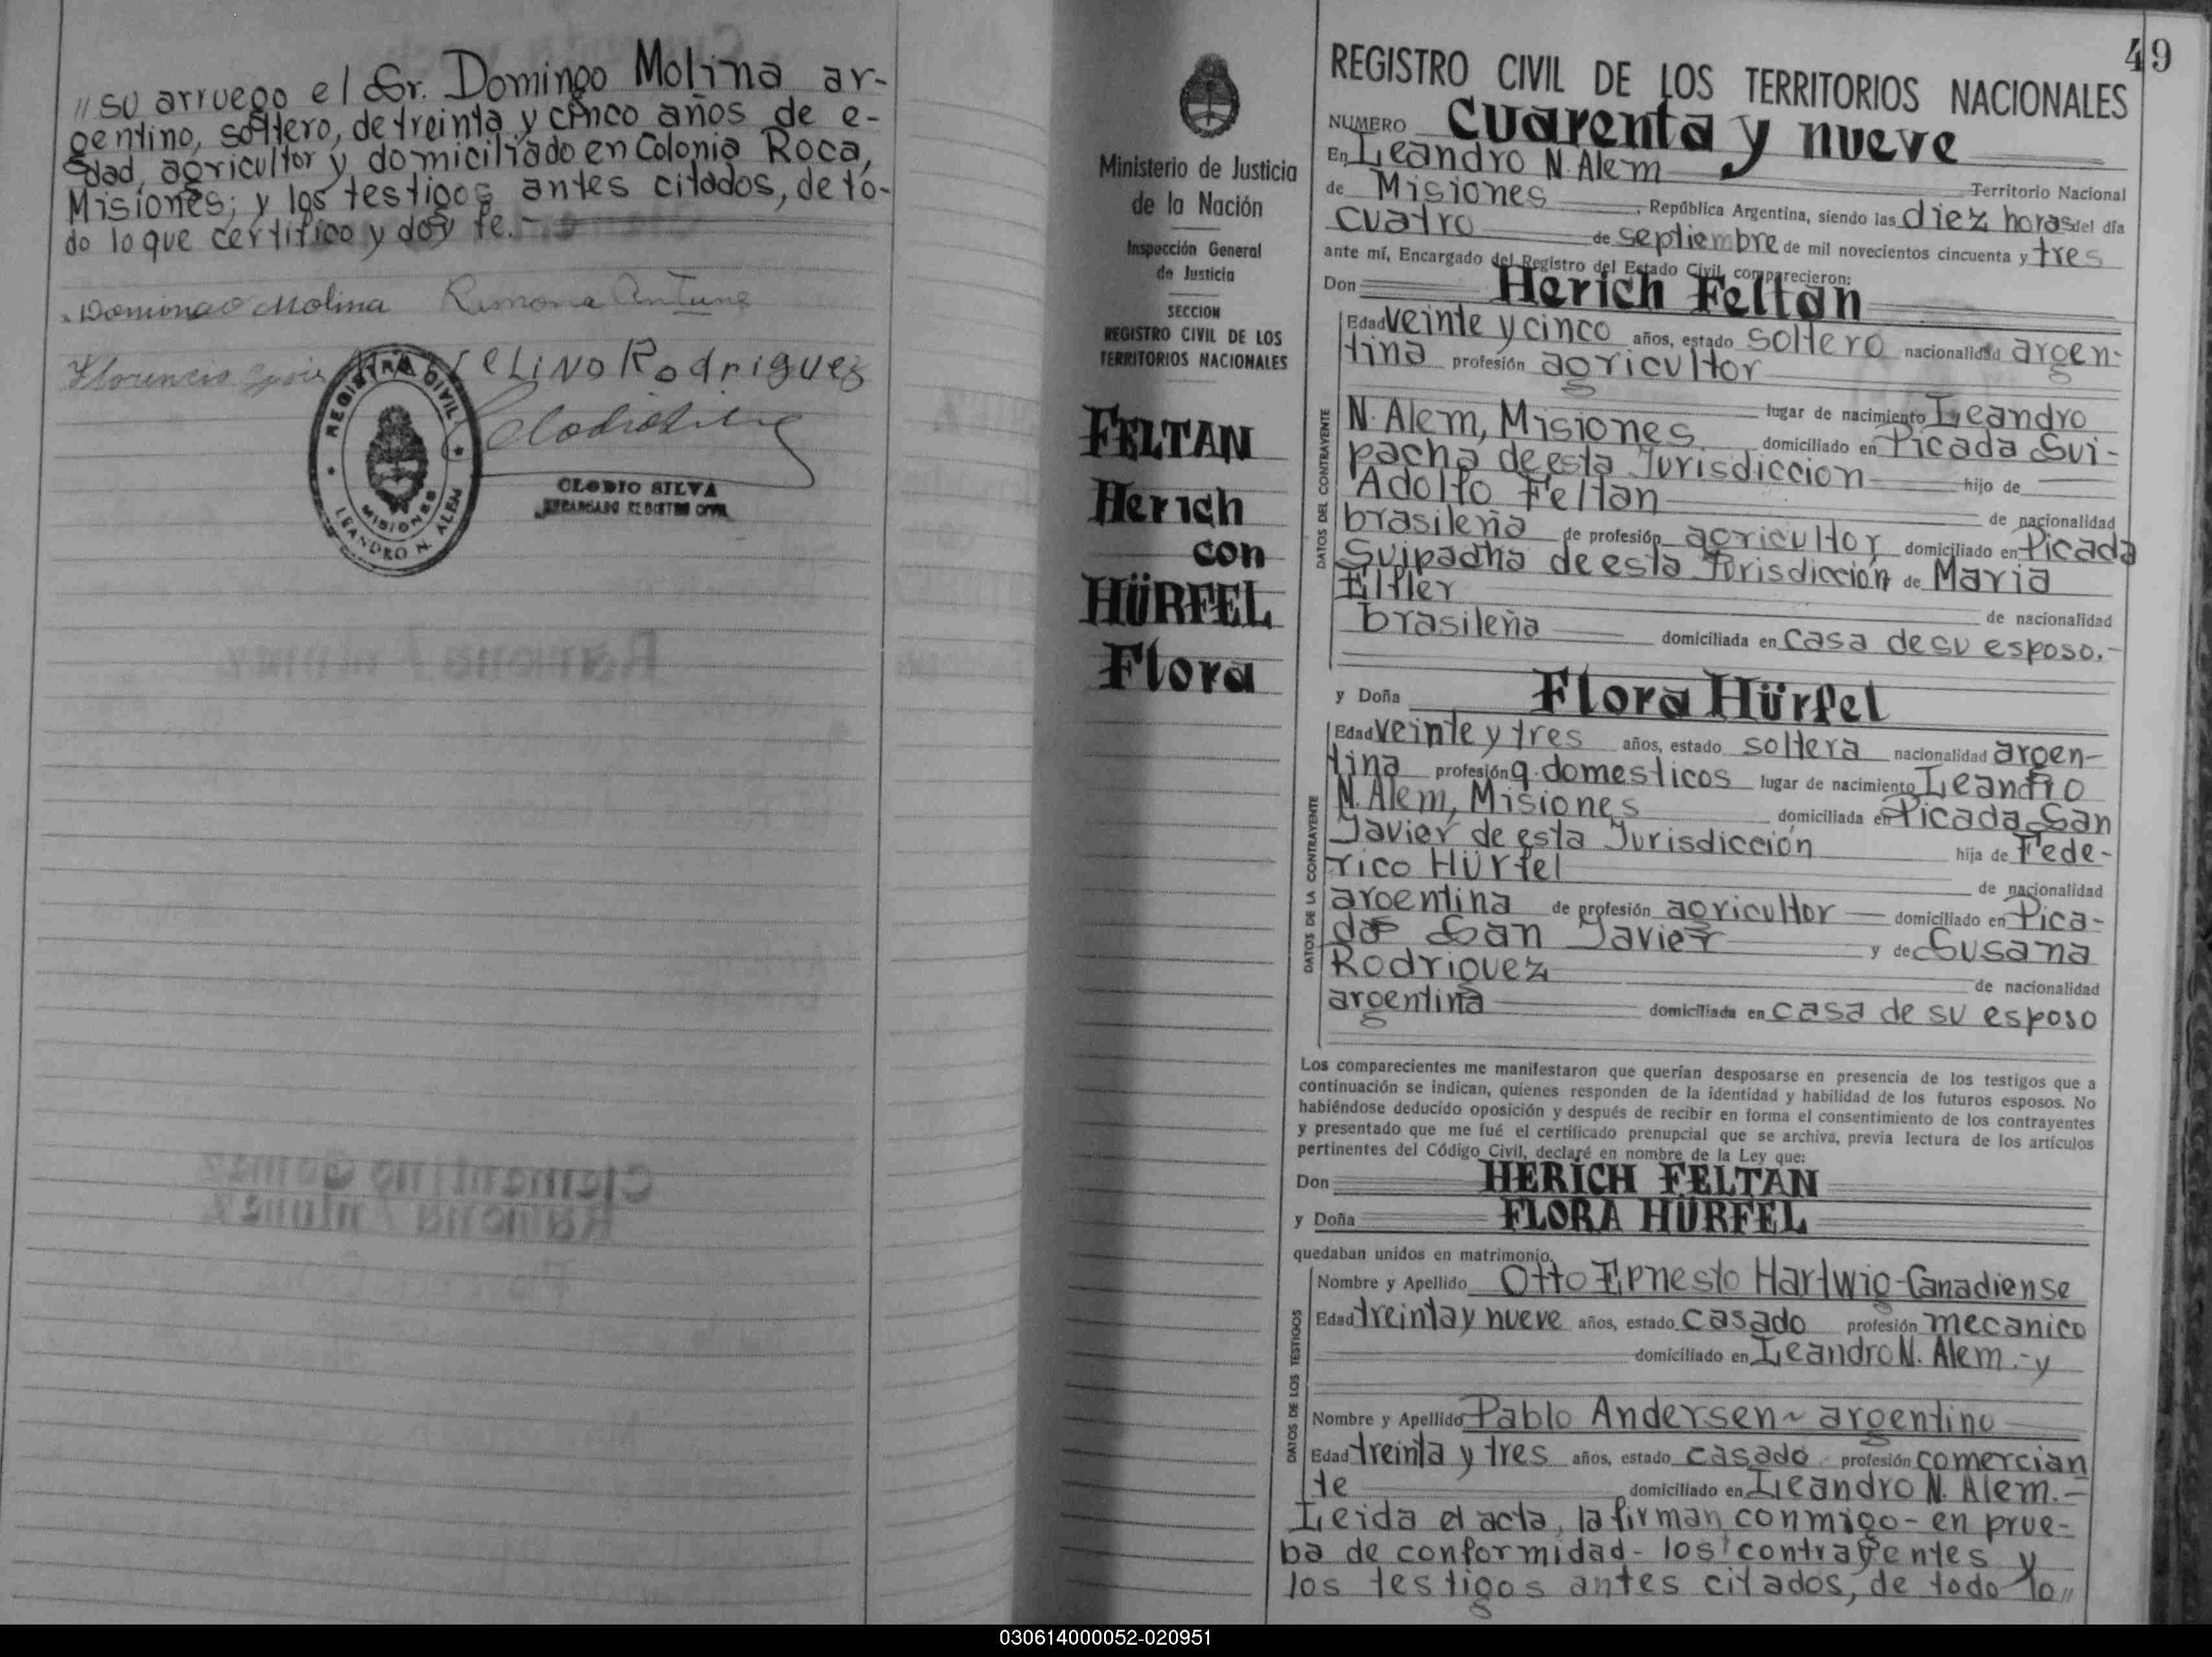 "su arruego el Sr. Domingo Molina ar-
gentino, soltero, de treinta y cinco años de e-
dad, agricultor y domiciliado en Colonia Roca,
Misiones; y los testigos antes citados, de to-
do lo que certifico y doy fe.-
Domingo Molina Ramona Antune
Florencio
ELINO Rodriguez
REGISTRO CIVIL
MISIONES
LEANDRO N. ALEM
CLODIO SILVA
ENCARGADO REGISTRO CIVIL
Ministerio de Justicia
de la Nación
Inspección General
de Justicia
SECCION
REGISTRO CIVIL DE LOS
TERRITORIOS NACIONALES
FELTAN
Herich
con
HÜRFEL
Flora
49
REGISTRO CIVIL DE LOS TERRITORIOS NACIONALES
NUMERO Cuarenta y nueve
En Leandro N. Alem Territorio Nacional
de Misiones, República Argentina, siendo las diez horas del día
cuatro de septiembre de mil novecientos cincuenta y tres
ante mí, Encargado del Registro del Estado Civil, comparecieron:
Don Herich Feltan
DATOS DEL CONTRAYENTE
Edad veinte y cinco años, estado soltero nacionalidad argen-
tina profesión agricultor
lugar de nacimiento Leandro
N. Alem, Misiones domiciliado en Picada Sui-
pacha de esta Jurisdiccion hijo de
Adolfo Feltan de nacionalidad
brasileña de profesión agricultor domiciliado en Picada
Suipacha de esta Jurisdicción de Maria
Elfler de nacionalidad
brasileña domiciliada en casa de su esposo.-
y Doña Flora Hürfel
DATOS DE LA CONTRAYENTE
Edad veinte y tres años, estado soltera nacionalidad argen-
tina profesión q. domesticos lugar de nacimiento Leandro
N. Alem, Misiones domiciliada en Picada San
Javier de esta Jurisdicción hija de Fede-
rico Hürfel de nacionalidad
argentina de profesión agricultor domiciliado en Pica-
da San Javier y de Susana
Rodriguez de nacionalidad
argentina domiciliada en casa de su esposo
Los comparecientes me manifestaron que querían desposarse en presencia de los testigos que a
continuación se indican, quienes responden de la identidad y habilidad de los futuros esposos. No
habiéndose deducido oposición y después de recibir en forma el consentimiento de los contrayentes
y presentado que me fué el certificado prenupcial que se archiva, previa lectura de los artículos
pertinentes del Código Civil, declaré en nombre de la Ley que:
Don HERICH FELTAN
y Doña FLORA HÜRFEL
quedaban unidos en matrimonio.
DATOS DE LOS TESTIGOS
Nombre y Apellido Otto Ernesto Hartwig-Canadiense
Edad treinta y nueve años, estado casado profesión mecanico
domiciliado en Leandro N. Alem.-y
Nombre y Apellido Pablo Andersen~ argentino
Edad treinta y tres años, estado casado profesión comercian
te domiciliado en Leandro N. Alem.-
Leida el acta, la firman conmigo-en prue-
ba de conformidad-los contrayentes y
los testigos antes citados, de todo lo"
030614000052-020951